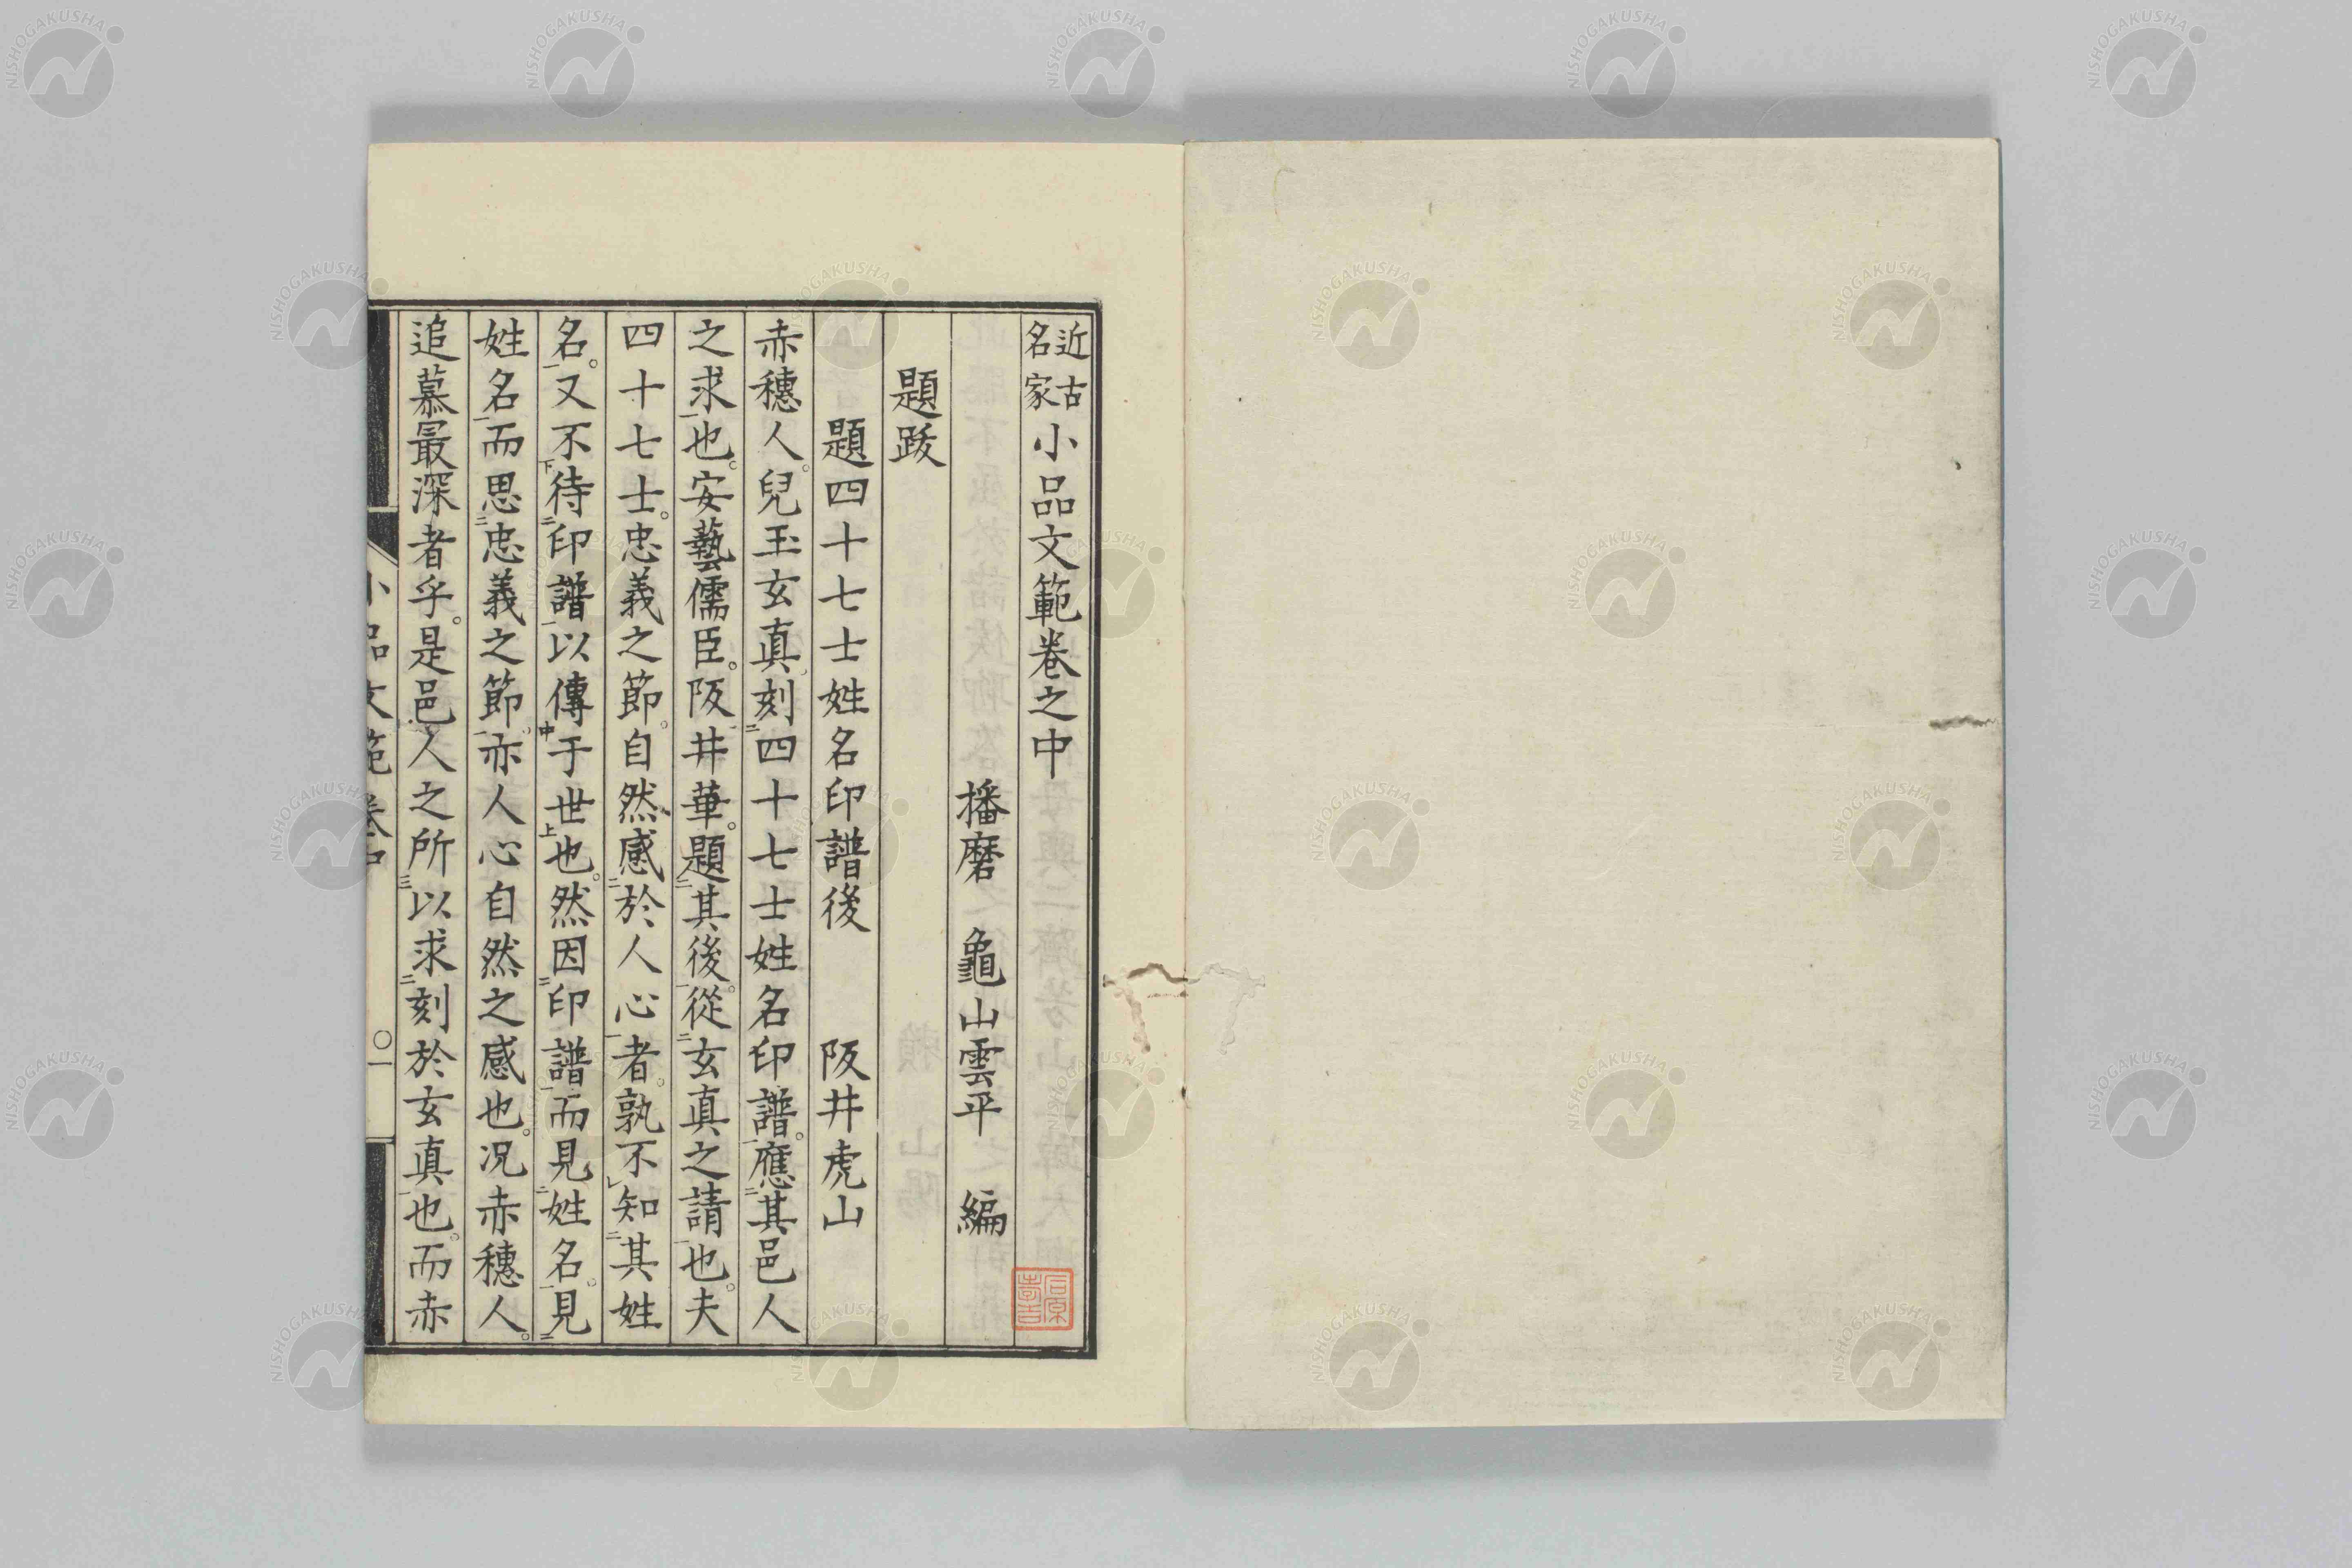 近古名家小品文範卷之中
播磨 龜山雲平 編
題跋
題四十七士姓名印譜後 阪井虎山
赤穗人。兒玉玄真。刻二四十七士姓名印譜。一應二其邑人
之求一也。安藝儒臣。阪井華。題二其後。一從二玄真之請一也。夫
四十七士。忠義之節。自然感二於人心一者。孰不レ知二其姓
名。一又不下待二印譜一以傳中于世上也。然因二印譜一而見二姓名。一見二
姓名一而思二忠義之節。一亦人心自然之感也。况赤穗人。
追慕最深者乎。是邑人之所三以求二刻於玄真一也。而赤
小品文範 卷中 〇一
NISHOGAKUSHA